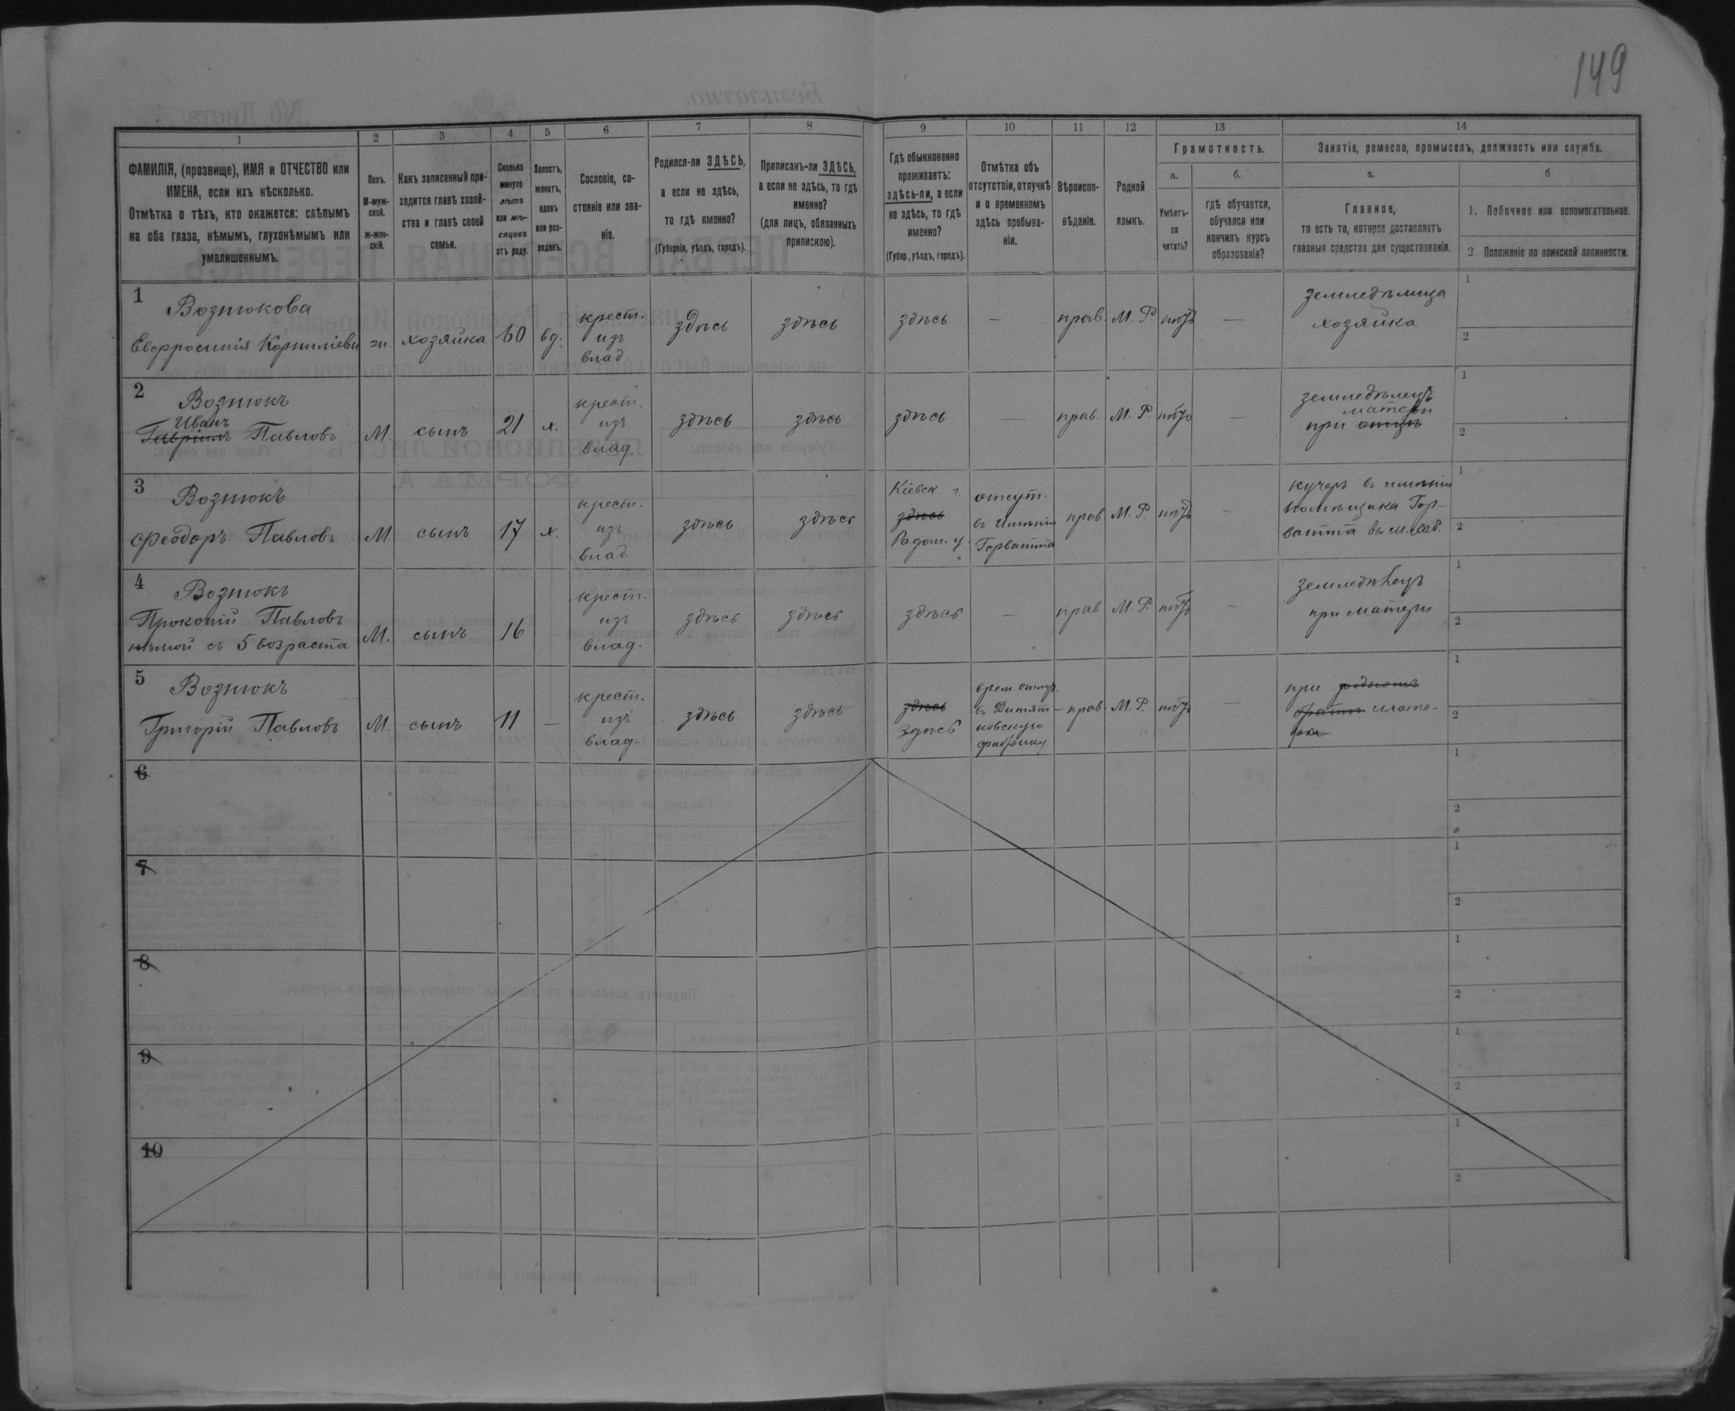 149
1
2
3
4
5
6
7
8
9
10
11
12
13
14
ФАМИЛІЯ, (прозвище), ИМЯ и ОТЧЕСТВО или
ИМЕНА, если ихъ нѣсколько.
Отмѣтка о тѣхъ, кто окажется: слѣпымъ
на оба глаза, нѣмымъ, глухонѣмымъ или
умалишеннымъ.
Полъ.
М-муж-
ской.
ж-жен-
скій.
Какъ записанный при-
ходится главѣ хозяй-
ства и главѣ своей
семьи.
Сколько
минуло
лѣтъ
или мѣ-
сяцевъ
отъ роду.
Холостъ,
женатъ,
вдовъ
или раз-
веденъ.
Сословіе, со-
стояніе или зва-
ніе.
Родился-ли ЗДѢСЬ,
а если не здѣсь,
то гдѣ именно?
(Губернія, уѣздъ, городъ).
Приписанъ-ли ЗДѢСЬ,
а если не здѣсь, то гдѣ
именно?
(для лицъ, обязанныхъ
припискою).
Гдѣ обыкновенно
проживаетъ:
здѣсь-ли, а если
не здѣсь, то гдѣ
именно?
(Губер., уѣздъ, городъ).
Отмѣтка объ
отсутствіи, отлучкѣ
и о временномъ
здѣсь пребыва-
ніи.
Вѣроиспо-
вѣданіе.
Родной
языкъ.
Грамотность.
а.
Умѣетъ-
ли
читать?
б.
гдѣ обучается,
обучался или
кончилъ курсъ
образованія?
Занятіе, ремесло, промыселъ, должность или служба.
а.
Главное,
то есть то, которое доставляетъ
главныя средства для существованія.
б
1. Побочное или вспомогательное.
2 Положеніе по воинской повинности.
1
Вознюкова
Евфросинія Корниліева ж. хозяйка 60 вд. крест. изъ влад. здѣсь здѣсь здѣсь — прав. М. Р. нѣтъ — земледѣлица хозяйка
1
2
2
Вознюкъ
Иванъ
Гавріилъ Павловъ М. сынъ 21 х. крест. изъ влад. здѣсь здѣсь здѣсь — прав. М. Р. нѣтъ — земледѣлецъ
матери
при отцѣ
1
2
3
Вознюкъ
Феодоръ Павловъ М. сынъ 17 х. крест. изъ влад. здѣсь здѣсь
Кіевск. г.
здѣсь
Радом. у.
отсут.
въ имѣніи
Горватта
прав М. Р. нѣтъ —
кучеръ въ имѣніи
помѣщика Гор-
ватта
1
2
4
Вознюкъ
Прокопій Павловъ
нѣмой съ 5 возраста М. сынъ 16 крест. изъ влад. здѣсь здѣсь здѣсь — прав М. Р. нѣтъ —
земледѣлецъ
при матери
1
2
5
Вознюкъ
Григорій Павловъ М. сынъ 11 — крест. изъ влад. здѣсь здѣсь
здѣсь
здѣсь
врем.
въ Дитят-
ковскую
фабрику
прав М. Р. нѣтъ —
при родномъ
братѣ
1
2
6
1
2
7
1
2
8
1
2
9
1
2
10
1
2